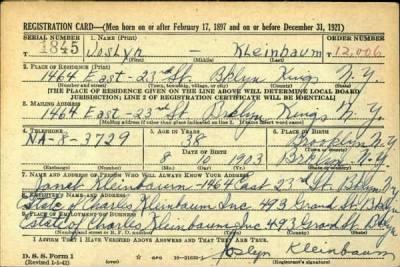 REGISTRATION CARD—(Men born on or after February 17, 1897 and on or before December 31, 1921)
SERIAL NUMBER 1. NAME (Print) ORDER NUMBER
1845 Joslyn — Kleinbaum 12,006
(First) (Middle) (Last)
2. PLACE OF RESIDENCE (Print)
1464 East-23rd St. Bklyn Kings N.Y.
(Number and street) (Town, township, village, or city) (County) (State)
[THE PLACE OF RESIDENCE GIVEN ON THE LINE ABOVE WILL DETERMINE LOCAL BOARD
JURISDICTION; LINE 2 OF REGISTRATION CERTIFICATE WILL BE IDENTICAL]
3. MAILING ADDRESS
1464 East-23rd St. Bklyn Kings N.Y.
[Mailing address if other than place indicated on line 2. If same insert word same]
4. TELEPHONE 5. AGE IN YEARS 6. PLACE OF BIRTH
NA-8-3729 38 Brooklyn
DATE OF BIRTH (Town or county)
8 10 1903 Brklyn N.Y.
(Exchange) (Number) (Mo.) (Day) (Yr.) (State or country)
7. NAME AND ADDRESS OF PERSON WHO WILL ALWAYS KNOW YOUR ADDRESS
Kleinbaum-1464 East 23rd St. Bklyn NY
8. EMPLOYER'S NAME AND ADDRESS
Estate of Charles Kleinbaum Inc 493 Grand St. Bklyn
9. PLACE OF EMPLOYMENT OR BUSINESS
Estate of Charles Kleinbaum Inc 493 Grand St. Bklyn
(Number and street or R. F. D. number) (Town) (County) (State)
I AFFIRM THAT I HAVE VERIFIED ABOVE ANSWERS AND THAT THEY ARE TRUE.
D. S. S. Form 1
(Revised 1-1-42) (over)
Joslyn Kleinbaum
(Registrant's signature)